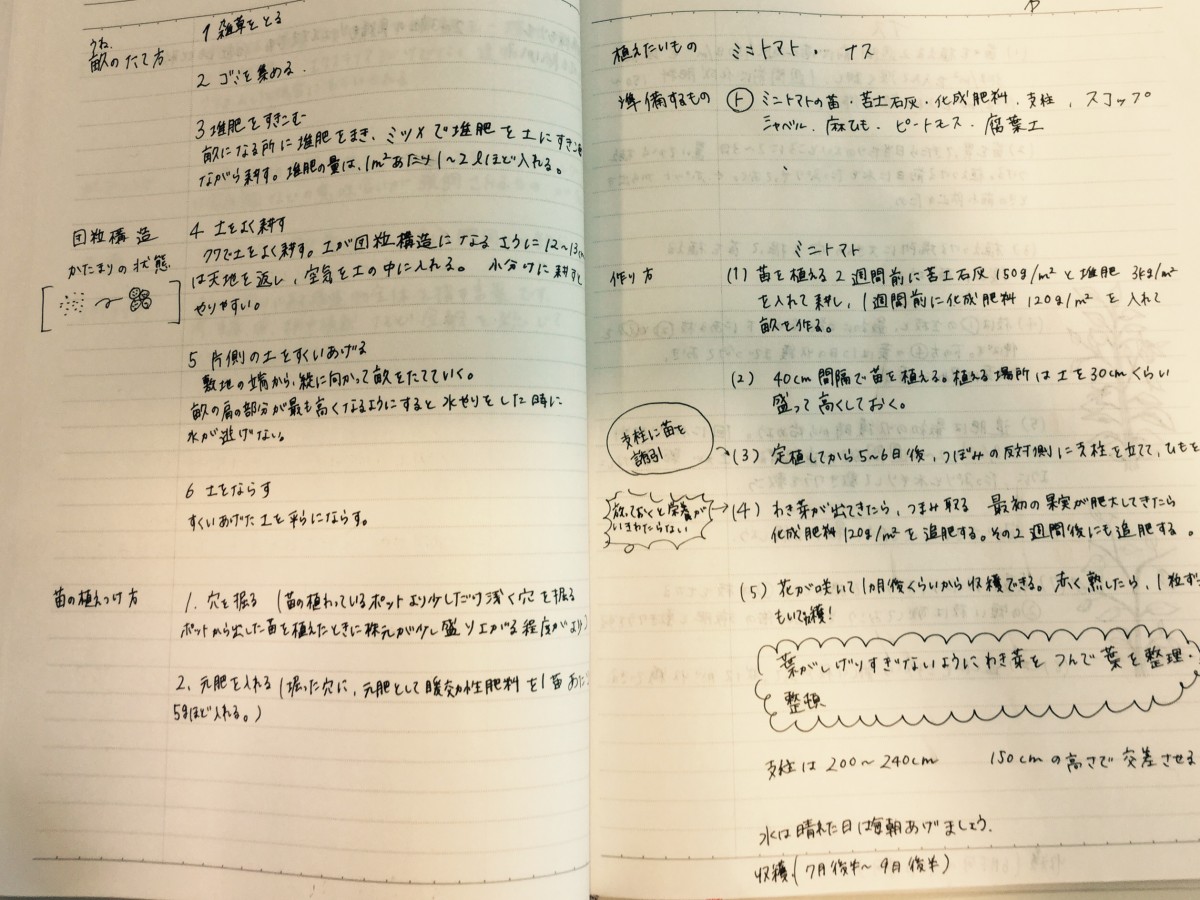 うね
畝のたて方
1 雑草をとる
2 ゴミを集める.
3 堆肥をすきこむ
畝になる所に堆肥をまき、ミツメで堆肥を土にすきこみ
ながら耕す。堆肥の量は、1m²あたり1〜2ℓほど入れる。
団粒構造
かたまりの状態
4 土をよく耕す
クワで土をよく耕す。土が団粒構造になるように12〜13cm
は天地を返し、空気を土の中に入れる。 小分けに耕すと
やりやすい。
5 片側の土をすくいあげる
敷地の端から、縦に向かって畝をたてていく。
畝の肩の部分が最も高くなるようにすると水やりをした時に
水が逃げない。
6 土をならす
すくいあげた土を平らにならす。
苗の植えつけ方
1. 穴を掘る (苗の植わっているポットより少しだけ浅く穴を掘る
ポットから出した苗を植えたときに株元が少し盛り上がる程度がよい)
2. 元肥を入れる (掘った穴に、元肥として緩効性肥料を1苗あたり
5gほど入れる。)
植えたいもの ミニトマト・ ナス
準備するもの ト ミニトマトの苗・苦土石灰・化成肥料・支柱、スコップ
シャベル・麻ひも・ピートモス・腐葉土
ミニトマト
作り方 (1) 苗を植える2週間前に苦土石灰150g/m²と堆肥 3kg/m²
を入れて耕し、1週間前に化成肥料 120g/m² を入れて
畝を作る。
(2) 40cm間隔で苗を植える。植える場所は土を30cmくらい
盛って高くしておく。
支柱に苗を
誘引
(3) 定植してから5〜6日後、つぼみの反対側に支柱を立てて、ひもを
放っておくと栄養が
いきわたらない
(4) わき芽が出てきたら、つまみ取る 最初の果実が肥大してきたら
化成肥料120g/m²を追肥する。その2週間後にも追肥する。
(5) 花が咲いて1ヵ月後くらいから収穫できる。赤く熟したら、1粒ずつ
もいで収穫!
葉がしげりすぎないようにわき芽をつんで葉を整理・
整頓
支柱は 200〜240cm 150cmの高さで交差させる
水は晴れた日は毎朝あげましょう.
収穫(7月後半〜9月後半)